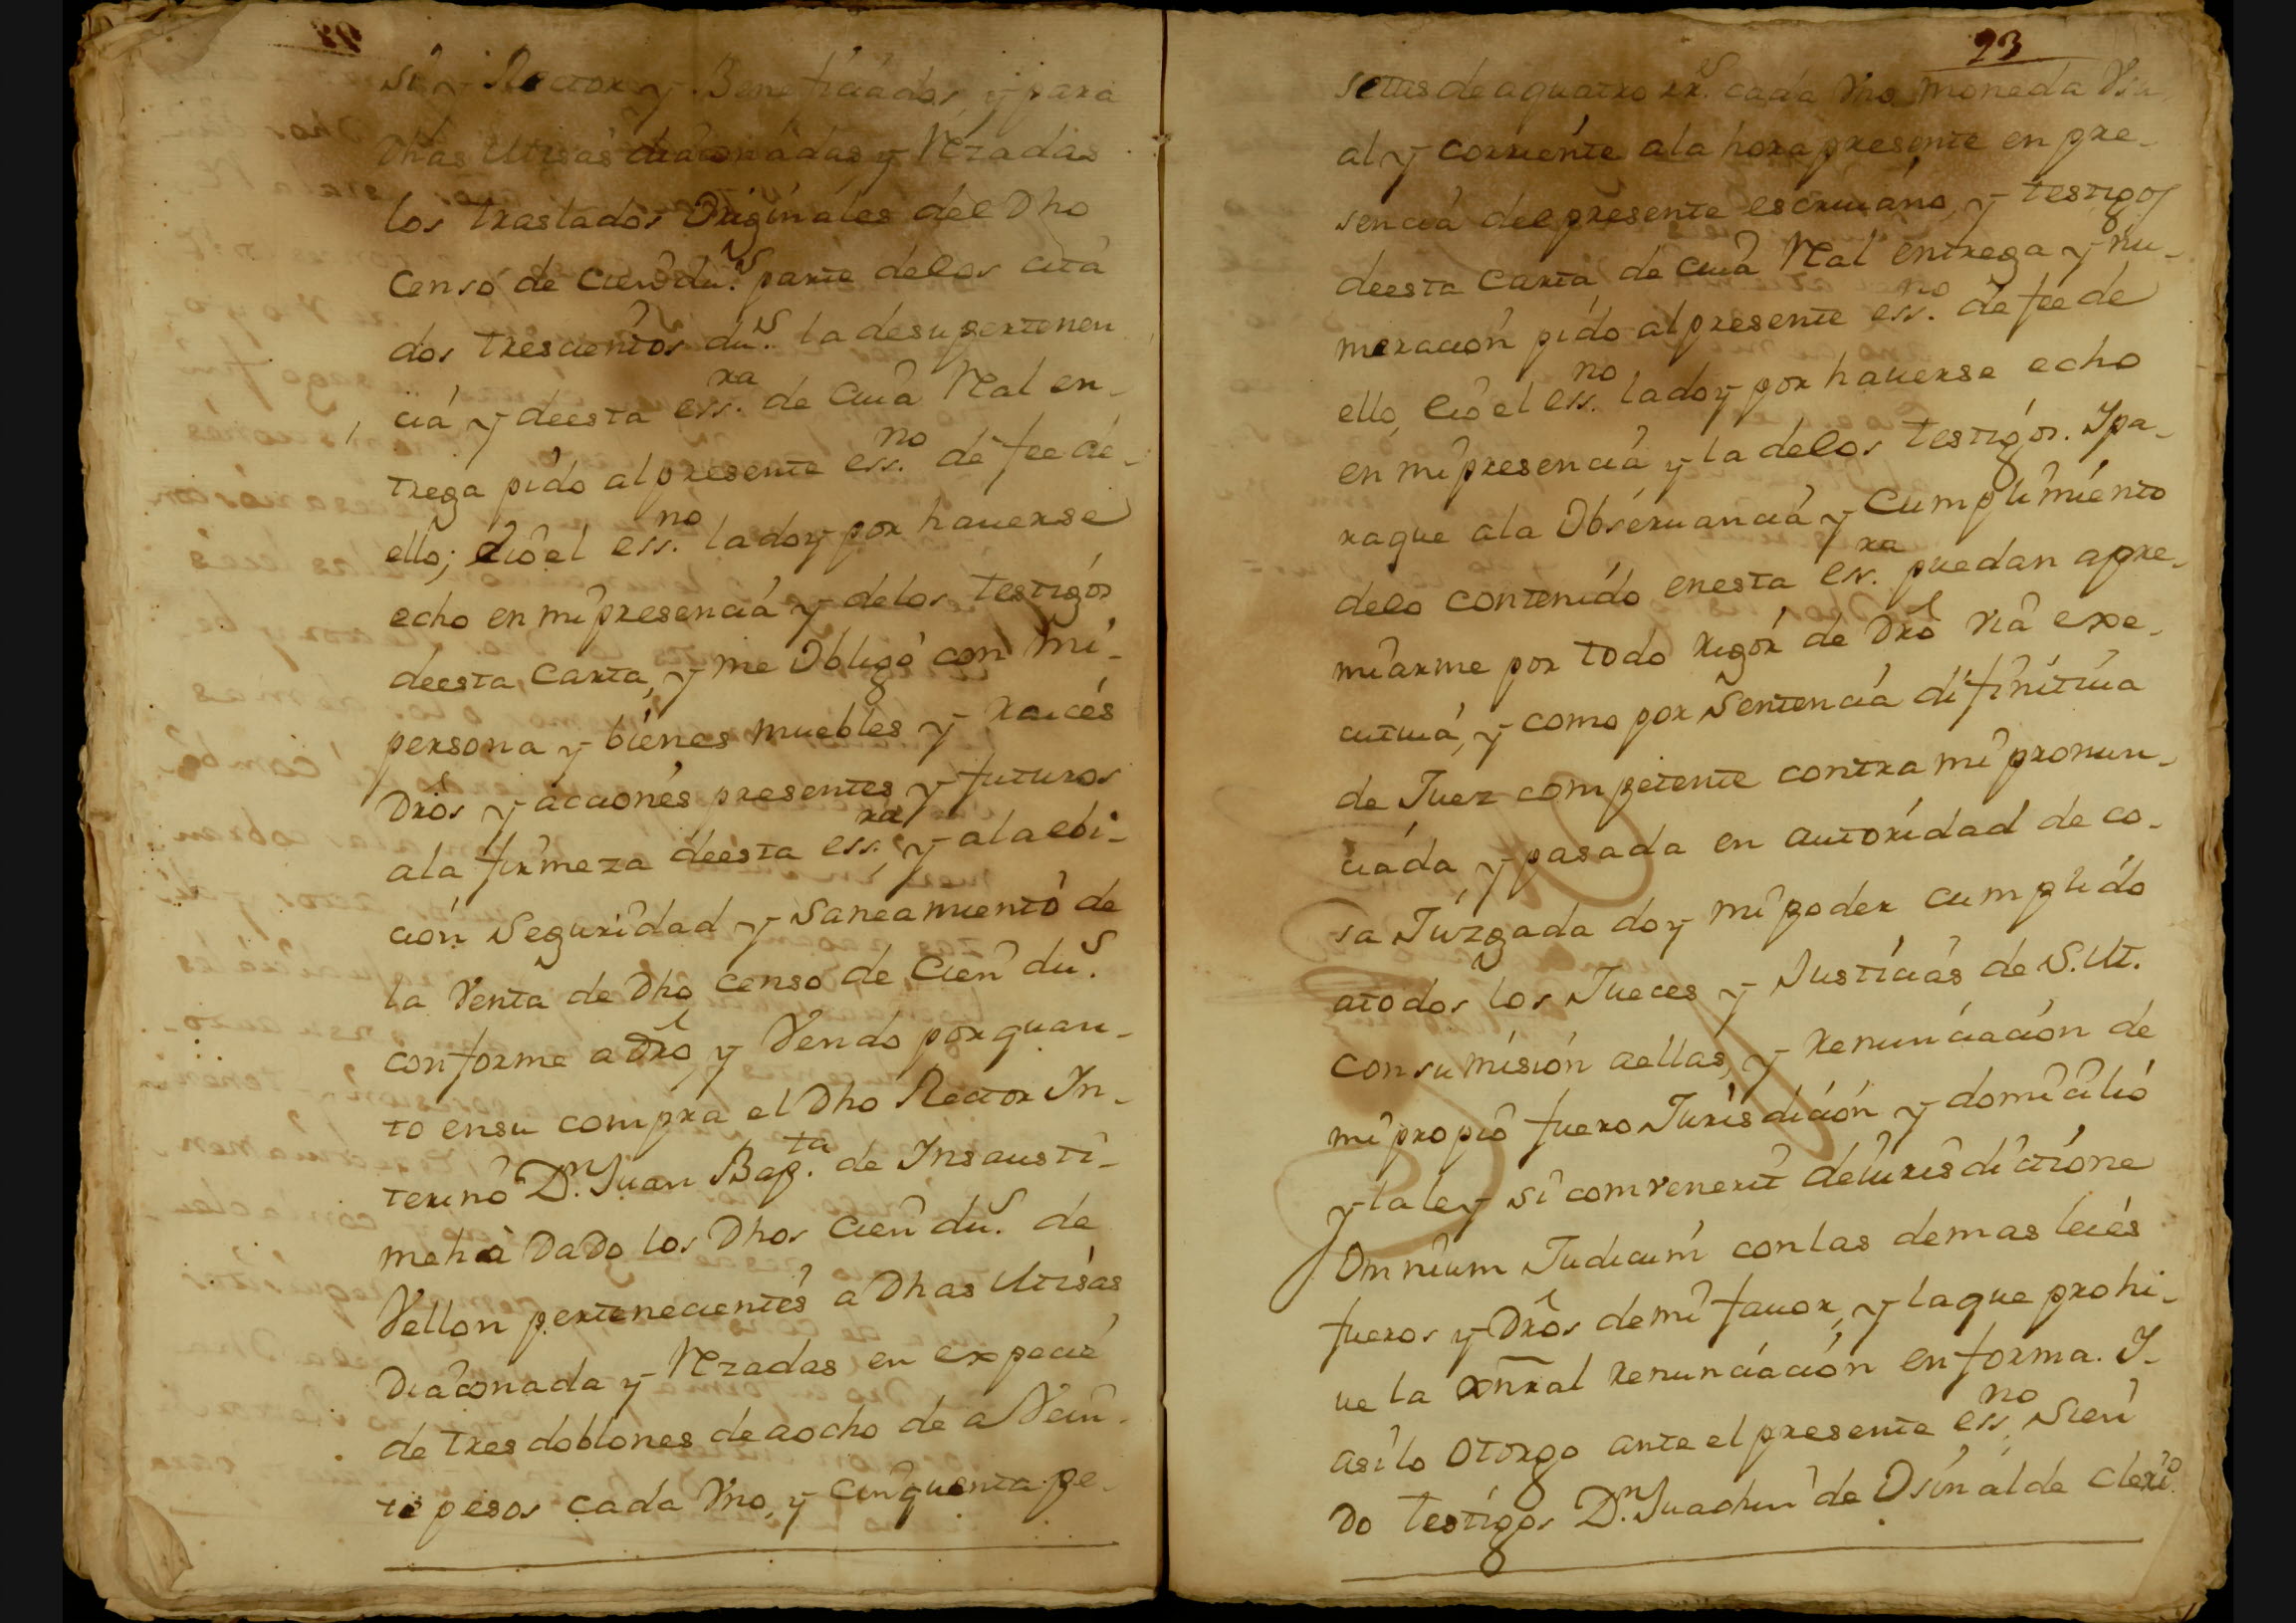 si y Rector y Beneficiados y para
Dhas Misas diaconadas y Rezadas
los traslados Originales del Dho
Censo de Cien du.s parte delos cita
dos trescientos du.s la desu pertenen
cia y deesta ess.ra de cuia Real en-
trega pido al presente ess.no de fee de-
ello; Eio el ess.no la doy por hauerse
echo en mi presencia y delos testigos
deesta Carta, y me Obligo con mi-
persona y bienes muebles y Raices
Dros y acciones presentes y futuros
ala firmeza deesta ess.ra, y ala ebi-
cion Seguridad y Saneamiento de
la Venta de Dho censo de Cien du.s
conforme a Dro, y Vendo por quan-
to ensu compra el Dho Rector In-
terino D.n Juan Bap.ta de Insausti-
meha Dado los Dhos Cien du.s de
Vellon pertenecientes a Dhas Misas
Diaconada y Rezadas en expecie
de tres doblones de aocho de a Vein-
te pesos cada Vno, y Cinquenta pe-
93
setas de aquatro rr.s cada Vna moneda Vsu
al y corriente ala hora presente en pre-
sencia del presente escriuano, y testigos
deesta Carta de cuia Real entrega y nu-
meracion pido al presente ess.no de fee de
ello, Eio el ess.no la doy por hauerse echo
en mi presencia y la delos testigos. Ipa-
raque ala Obseruancia y Cumplimiento
delo contenido enesta ess.ra puedan apre-
miarme por todo Rigor de Dro via exe-
cutiua, y como por Sentencia difinitiua
de Juez competente contra mi pronun-
ciada, y pasada en autoridad de co-
sa Juzgada doy mi poder cumplido
atodos los Jueces y Justicias de S.M.
consumision aellas, y Renunciacion de
mi propio fuero Jurisdicion y domicilio
y la ley Si combenerit deiurisdictione
Omnium Judicum con las demas leies
fueros y Dros demi fauor, y la que prohi-
ue la Gnral Renunciacion en forma. I-
asilo Otorgo ante el presente ess.no Sien
do testigos D.n Juachin de Osinalde cleri.o